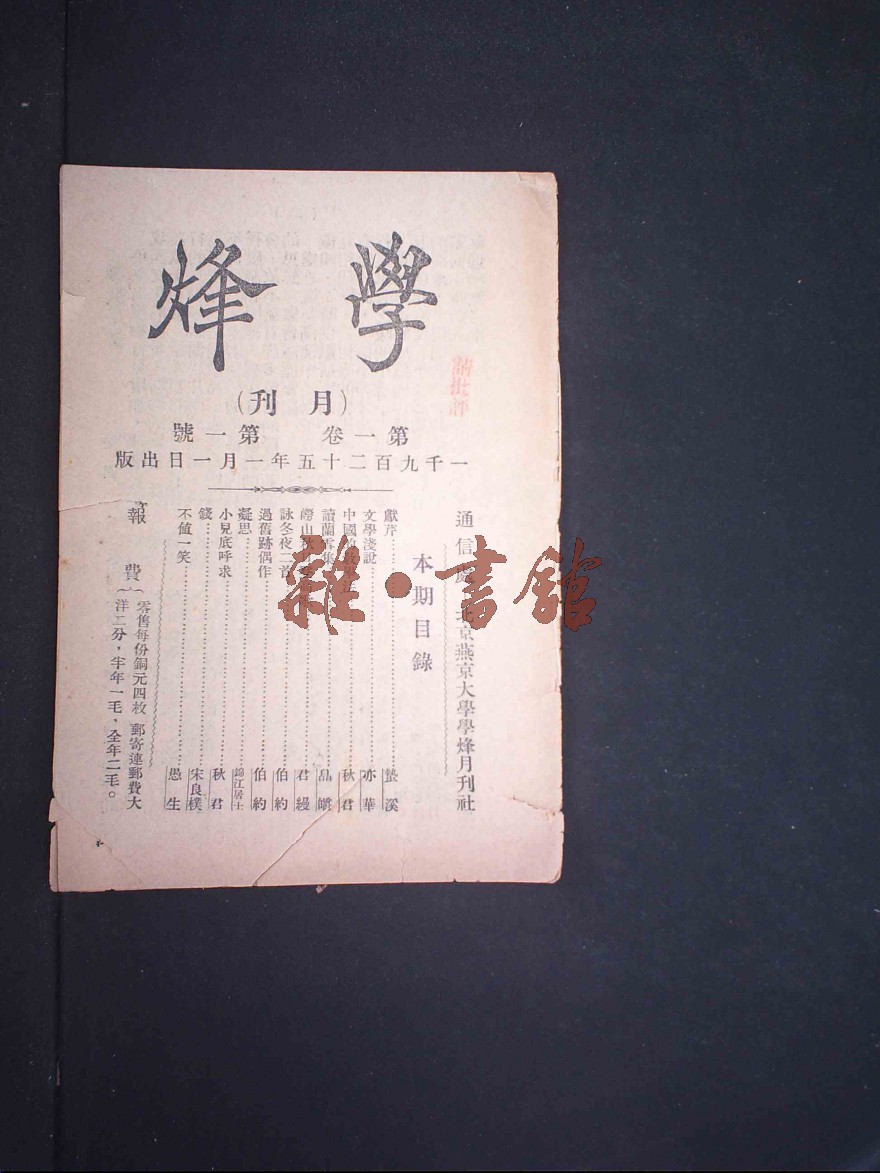 學烽
(月刊)
第一卷 第一號
一千九百二十五年一月一日出版
請批評
通信處 北京燕京大學學烽月刊社
本期目錄
獻芹 蟄溪
文學淺說 亦華
中國 秋君
讀蘭言集 品嶙
山秋 君縵
詠冬夜二首 伯約
過舊跡偶作 伯約
凝思 錦江居士
小兒底呼求 秋君
錢 宋良樸
不值一笑 愚生
報費
零售每份銅元四枚 郵寄連郵費大
洋二分,半年一毛,全年二毛。
雜·書館